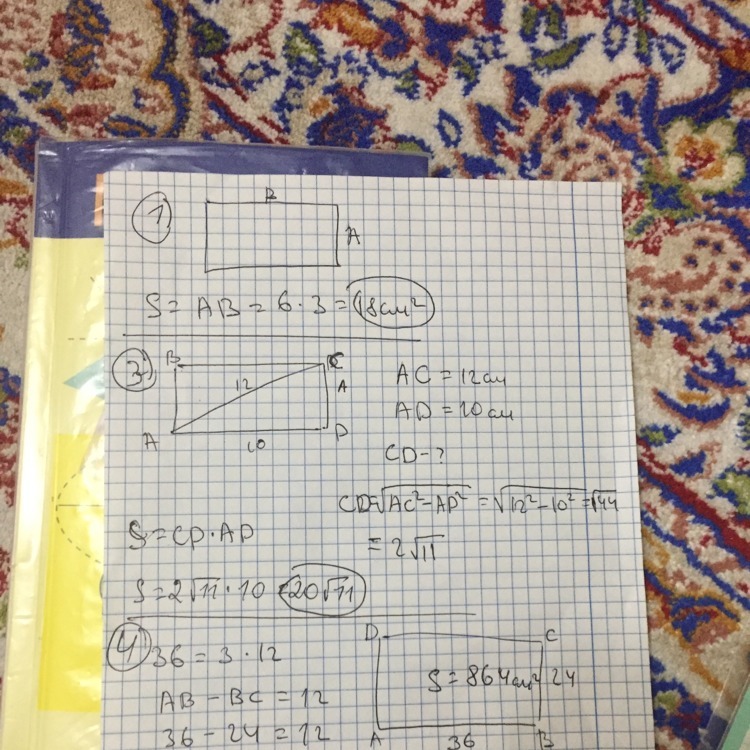 1
B
A
S = AB = 6 · 3 = 18 см²
3
B C
12 A
A 10 D
AC = 12 см
AD = 10 см
CD - ?
CD = √AC² - AD² = √12² - 10² = √44
= 2√11
S = CD · AD
S = 2√11 · 10 = 20√11
4
36 = 3 · 12
AB - BC = 12
36 - 24 = 12
D C
S = 864 см² 24
A 36 B